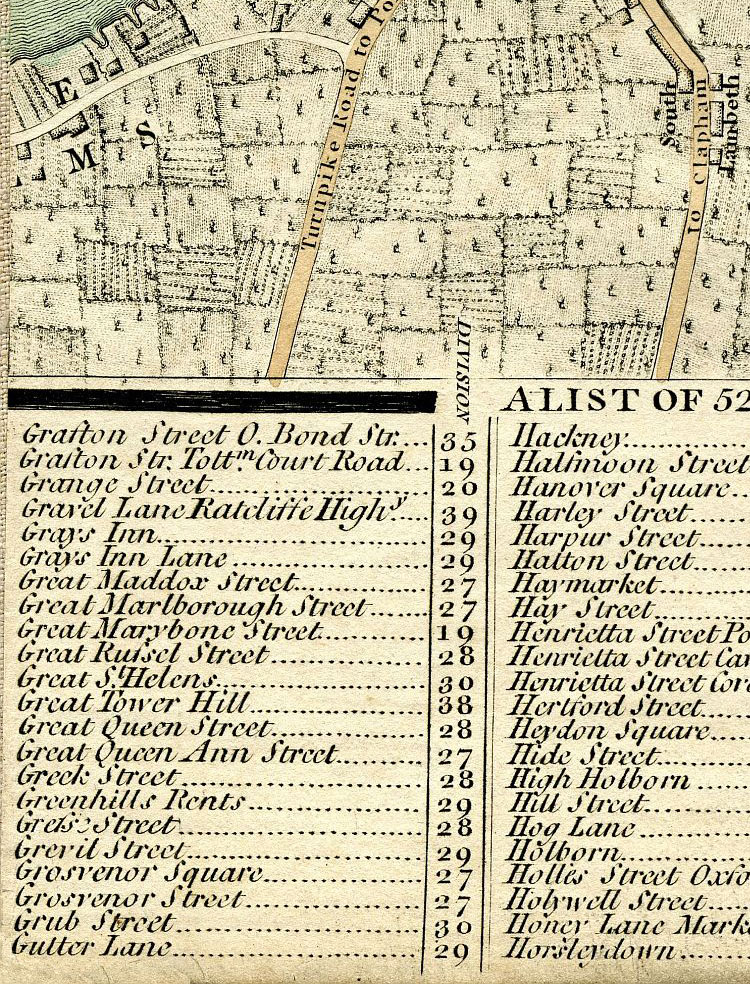 E
M S
Turnpike Road to Po
South
Lambeth
to Clapham
DIVISION
Grafton Street O. Bond Str. 35
Grafton Str. Tottm Court Road 19
Grange Street 20
Gravel Lane Ratcliffe Highy 39
Grays Inn 29
Grays Inn Lane 29
Great Maddox Street 27
Great Marlborough Street 27
Great Marybone Street 19
Great Russel Street 28
Great St Helens 30
Great Tower Hill 38
Great Queen Street 28
Great Queen Ann Street 27
Greek Street 28
Greenhills Rents 29
Street 28
Grevil Street 29
Grosvenor Square 27
Grosvenor Street 27
Grub Street 30
Gutter Lane 29
A LIST OF 52
Hackney
Halfmoon Street
Hanover Square
Harley Street
Harpur Street
Hatton Street
Haymarket
Hay Street
Henrietta Street Po
Henrietta Street Cav
Henrietta Street Cov
Hertford Street
Heydon Square
Hide Street
High Holborn
Hill Street
Hog Lane
Holborn
Holles Street Oxfo
Holywell Street
Honey Lane Marke
Horsleydown